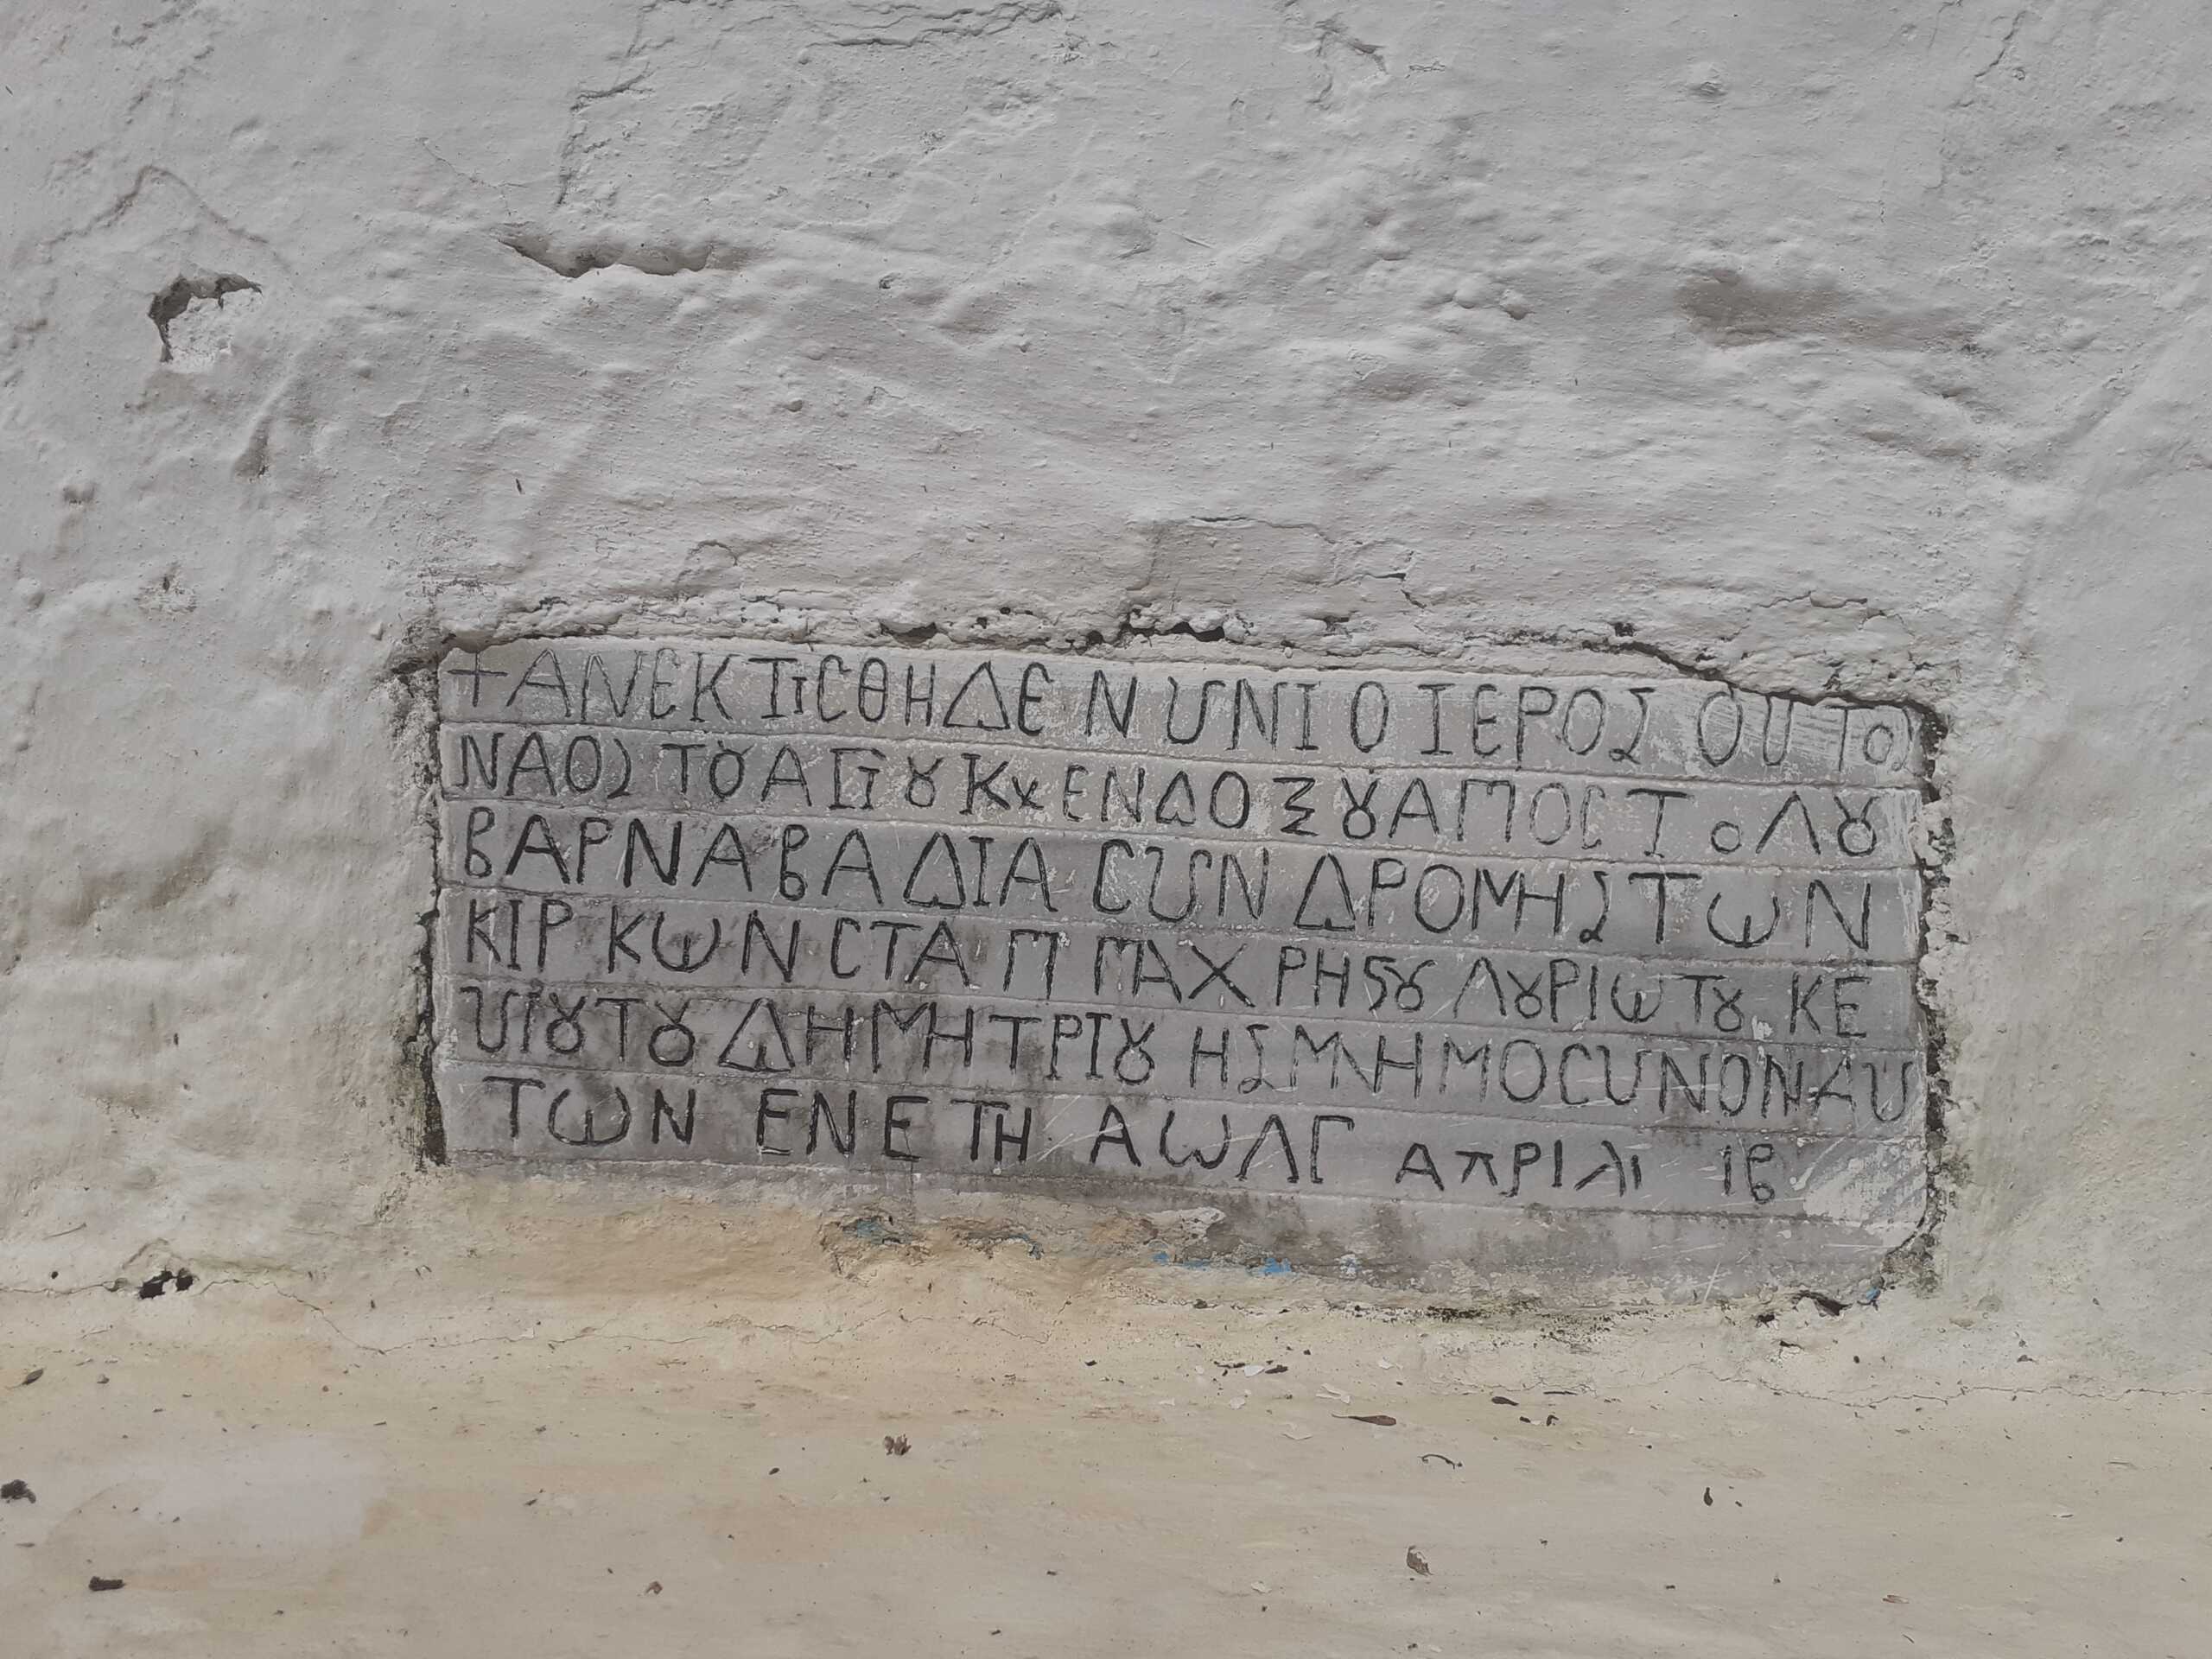 +ΑΝΕΚΤΙСΘΗ ΔΕ ΝΥΝΙ Ο ΙΕΡΟΣ ΟΥΤΟΣ
ΝΑΟΣ ΤȢ ΑΓΙȢ Κχ ΕΝΔΟΞȢ ΑΠΟСΤΟΛȢ
ΒΑΡΝΑΒΑ ΔΙΑ СΥΝΔΡΟΜΗΣ ΤΩΝ
ΚΙΡ ΚΩΝСΤΑ Π ΜΑΧΡΗϚȢ ΛȢΡΙΩΤȢ ΚΕ
ΥΙȢ ΤȢ ΔΗΜΗΤΡΙȢ ΗΣ ΜΝΗΜΟСΥΝΟΝ ΑΥ
ΤΩΝ ΕΝ ΕΤΗ ΑΩΛΓ ΑΠΡΙΛΙ ΙΒ